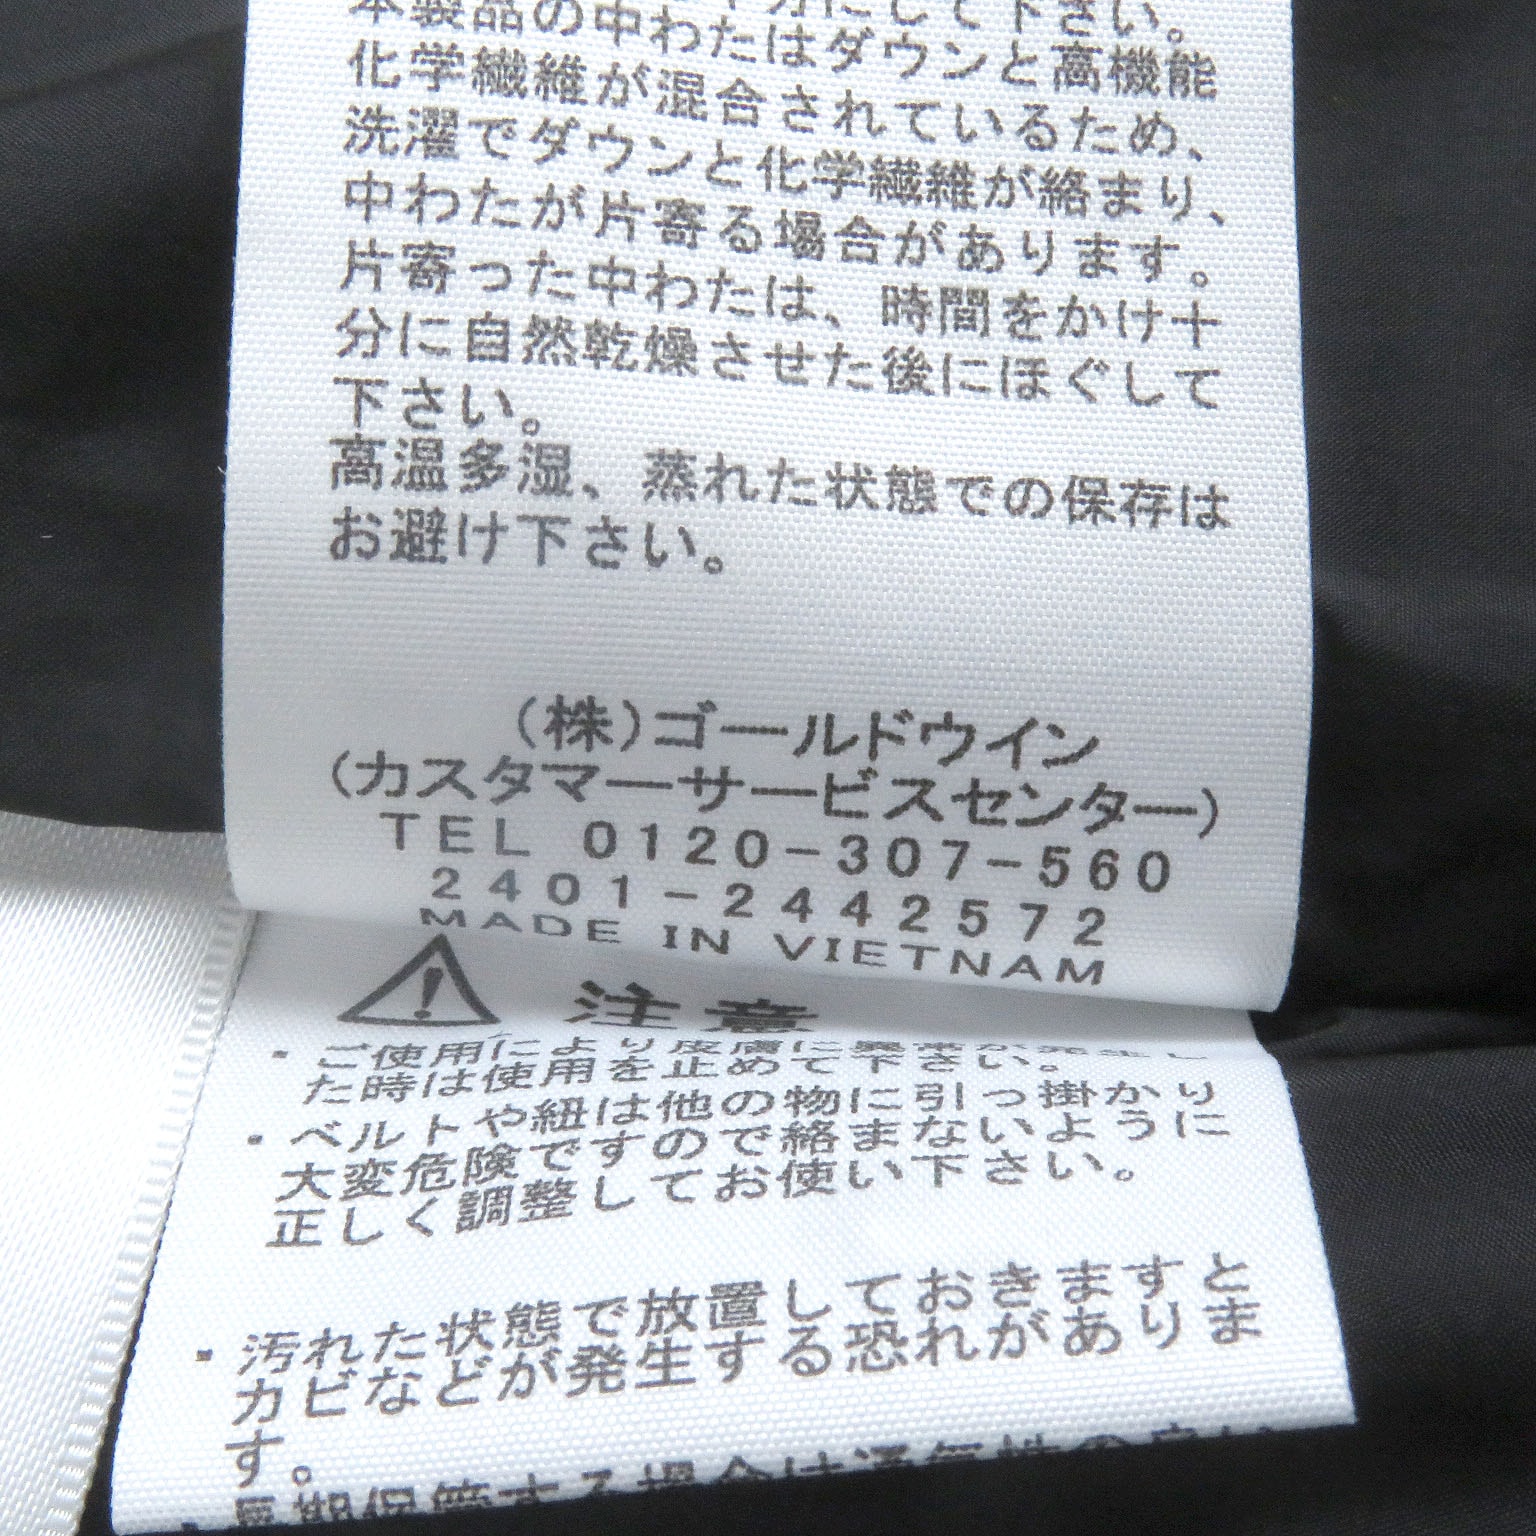 本製品の中わたはダウンと高機能
化学繊維が混合されているため、
洗濯でダウンと化学繊維が絡まり、
中わたが片寄る場合があります。
片寄った中わたは、時間をかけ十
分に自然乾燥させた後にほぐして
下さい。
高温多湿、蒸れた状態での保存は
お避け下さい。
(株)ゴールドウイン
(カスタマーサービスセンター)
TEL 0120-307-560
2401-2442572
MADE IN VIETNAM
注意
・ご使用により皮膚に異常が発生し
た時は使用を止めて下さい。
・ベルトや紐は他の物に引っ掛かり
大変危険ですので絡まないように
正しく調整してお使い下さい。
・汚れた状態で放置しておきますと
カビなどが発生する恐れがありま
す。
・長期保管する場合は通気性の良い